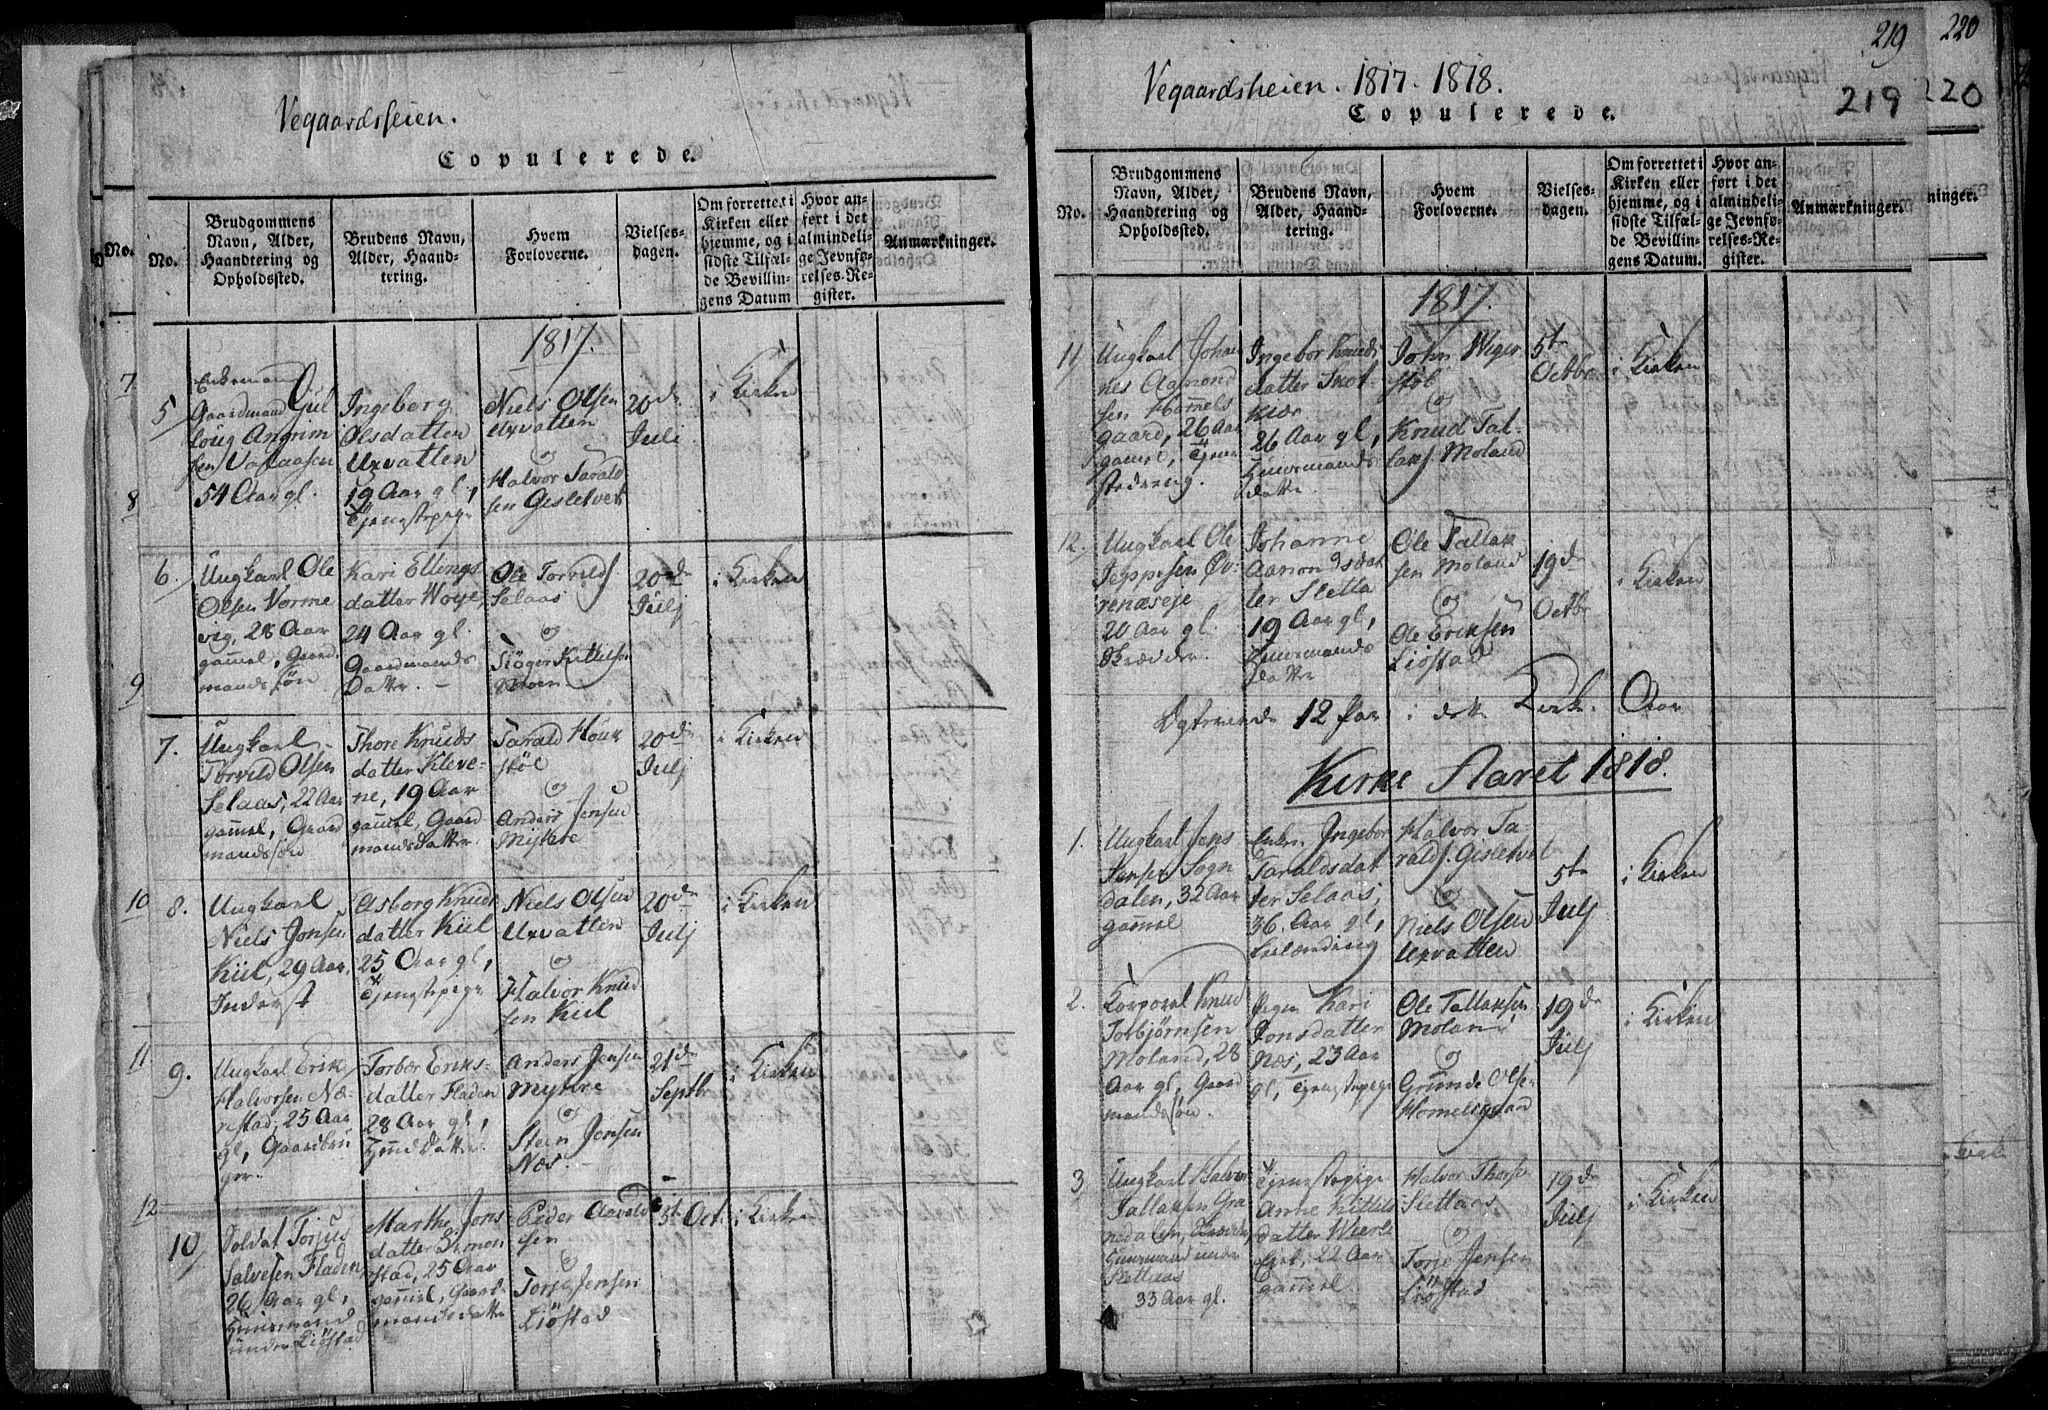 Vegaardsheien.
Copulerede.
No.
No.
Brudgommens
Navn, Alder,
Haandtering og
Opholdssted.
Brudens Navn,
Alder, Haand-
tering.
Hvem
Forloverne.
Vielses-
dagen.
Om forrettet i
Kirken eller
hjemme, og i
sidste Tilfæl-
de Bevillin-
gens Datum
Hvor an-
ført i det
almindeli-
ge Jevnfø-
relses-Re-
gister.
Anmærkninger.
1817.
7
8
9
10
11
12
5
Enkemand
Gaardmand Gul
loug Angrim
sen Vaaaasen
54 Aar gl.
Ingeborg
Olsdatter
Uxvatten
19 Aar gl,
Tjenestepige
Niels Olsen
Uxvatten
og
Halvor Tarald
sen Gisletvet
20de
Juli
i Kirken
6.
Ungkarl Ole
Olsen Vorme
vig, 28 Aar
gammel, Gaard
mands søn
Kari Ellings
datter Woje,
24 Aar gl.
Gaardmands
Datter.
Ole Torvilds
Selaas
og
Siöger Kittelsen
Moen.
20de
Julj
i Kirken
7.
Ungkarl
Torvild Olsen
Selaas, 22 Aar
gammel, Gaard
mandssøn
Thore Knuds
datter Kleve-
ne, 19 Aar
gammel, Gaard
mandsdatter.
Tarald Houk
støl
og
Anders Jensen
Mykre
20de
Julj
i Kirken
8.
Ungkarl
Niels Jonsen
Kiil, 29 Aar,
Inderst
Asborg Knuds
datter Kiil
25 Aar gl,
Tjenestepige
Niels Olsen
Uxvatten
og
Halvor Knud
sen Kiil
20de
Julj
i Kirken
9.
Ungkarl Erik
Halvorsen Næ-
restad, 25 Aar
gl, Gaardbru
ger.
Torber Eriks-
datter Fladen
28 Aar gl,
Huusm. Datter.
Anders Jensen
Mykre
og
Sten Jonsen
Næs.
21de
Septbr
i Kirken
10
Soldat Torjus
Salvesen Fladen,
26 Aar gl,
Huusmand
under Liöstad
Marthe Jons
datter Simon
stad, 25 Aar
gammel, Gaard
mandsdatter
Peder Aavold
sen
og
Torje Jensen
Liöstad
5te Oct.
i Kirken
219
220
Vegaardsheien. 1817. 1818.
219
220
Copulerede.
No.
Brudgommens
Navn, Alder,
Haandtering og
Opholdssted.
Brudens Navn,
Alder, Haand-
tering.
Hvem
Forloverne.
Vielses-
dagen.
Om forrettet i
Kirken eller
hjemme, og i
sidste Tilfæl-
de Bevillin-
gens Datum.
Hvor an-
ført i det
almindeli-
ge Jevnfø-
relses-Re-
gister.
Anmærkninger.
ninger.
1817.
11
Ungkarl Johan
nes Aamond
sen Hommels
gaard, 26 Aar
gamel, Tjene
stedreng.
Ingebor Knuds
datter Skot-
kiær
26 Aar gl,
Huusmands
datter.
John Wiger
støl
og
Knud Tal-
laks. Moland
5te
Octbr
i Kirken
12.
Ungkarl Ole
Jeppesen Øv-
renæseje
20 Aar gl.
Skrædder.
Johanne
Aamondsdat
ter Sletta
19 Aar gl,
Huusmands
datter
Ole Tallak
sen Moland
og
Ole Eriksen
Liöstad
19de
Octbr
i Kirken
12 Par i dette Kirke Aar
Kirke Aaret 1818.
1.
Ungkarl Jens
Jensen Sogn
dalen, 32 Aar
gammel
Enken Ingebor
Taraldsdat
ter Selaas,
36. Aar gl,
Halvor Ta
ralds. Gisletvet
og
Niels Olsen
Uxvatten
5te
Julj
i Kirken
2.
Korporal Knud
Torbjørnsen
Moland, 28
Aar gl, Gaard
mandssøn.
Pigen Kari
Jonsdatter
Næs, 23 Aar
gl, Tjenestepige
Ole Tallaksen
Moland
og
Grunde Olsen
Homelsgaard
19de
Julj
i Kirken
3
Ungkarl Halvor
Tallaksen Gra
nedalen,
Huusmand under
Slettaas
33 Aar gl.
Tjenestepige
Anne Kittils
datter Wierls
22 Aar
gammel
Halvor Thors.
Slettaas
og
Torje Jensen
Liöstad
19de
Julj
i Kirken